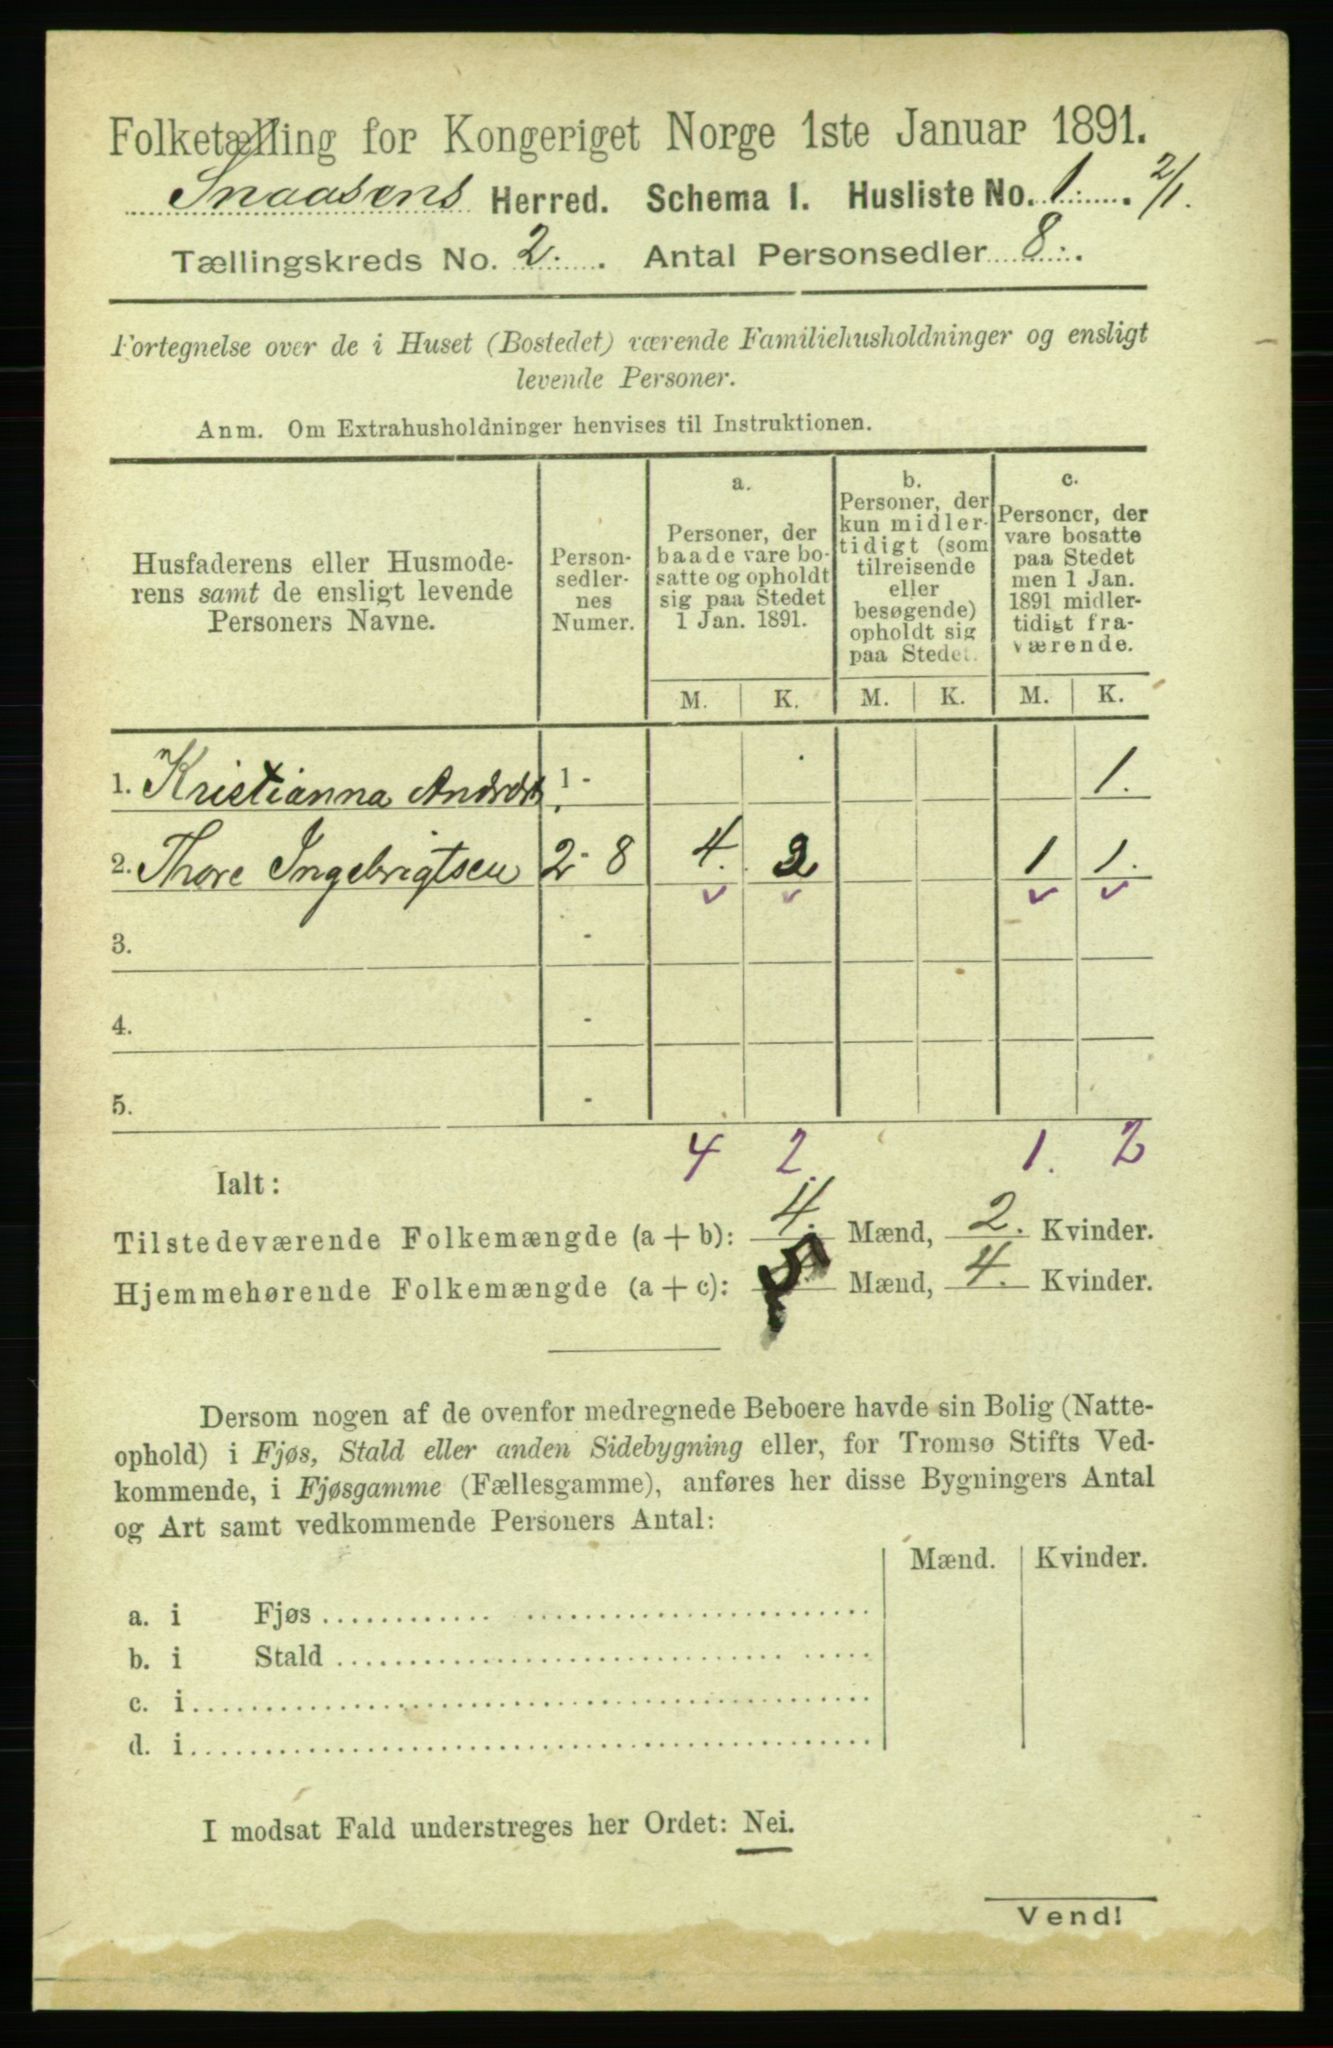 Folketælling for Kongeriget Norge 1ste Januar 1891.
Snaasens Herred. Schema I. Husliste No. 1. 2/1.
Tællingskreds No. 2. Antal Personsedler 8.
Fortegnelse over de i Huset (Bostedet) værende Familiehusholdninger og ensligt
levende Personer.
Anm. Om Extrahusholdninger henvises til Instruktionen.
Husfaderens eller Husmode-
rens samt de ensligt levende
Personers Navne.
Person-
sedler-
nes
Numer.
a.
Personer, der
baade vare bo-
satte og opholdt
sig paa Stedet
1 Jan. 1891.
b.
Personer, der
kun midler-
tidigt (som
tilreisende
eller
besøgende)
opholdt sig
paa Stedet.
c.
Personer, der
vare bosatte
paa Stedet
men 1 Jan.
1891 midler-
tidigt fra-
værende.
M. K. M. K. M. K.
1. Kristianna 1 - 1.
2. Thore Ingebrigtsen 2 - 8 4. 2 1 1.
3. -
4. -
5. -
4 2. 1. 2
Ialt:
Tilstedeværende Folkemængde (a + b): 4. Mænd, 2. Kvinder.
Hjemmehørende Folkemængde (a + c): 5 Mænd, 4. Kvinder.
Dersom nogen af de ovenfor medregnede Beboere havde sin Bolig (Natte-
ophold) i Fjøs, Stald eller anden Sidebygning eller, for Tromsø Stifts Ved-
kommende, i Fjøsgamme (Fællesgamme), anføres her disse Bygningers Antal
og Art samt vedkommende Personers Antal:
Mænd. Kvinder.
a. i Fjøs
b. i Stald
c. i
d. i
I modsat Fald understreges her Ordet: Nei.
Vend!